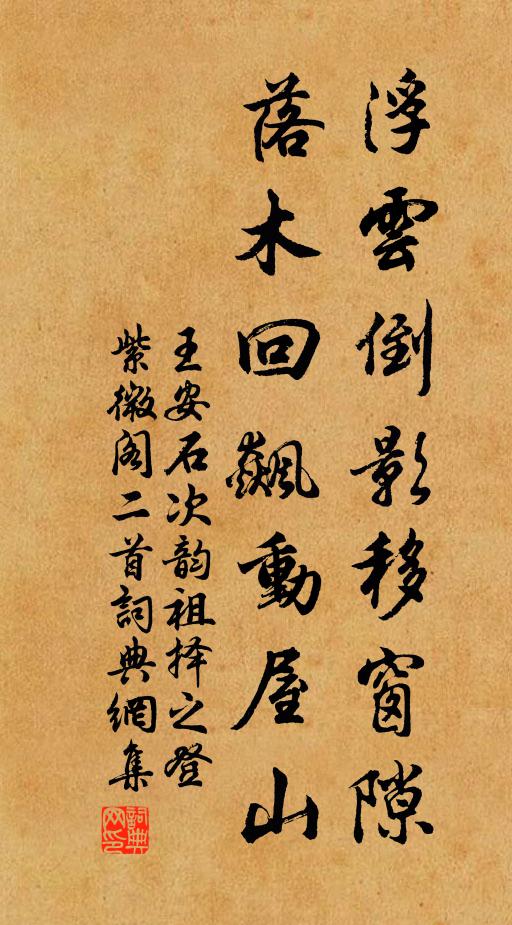 浮雲倒影移窗隙
落木回飆動屋山
王安石次韵祖择之登
紫微阁二首詞典網集
詞典网印